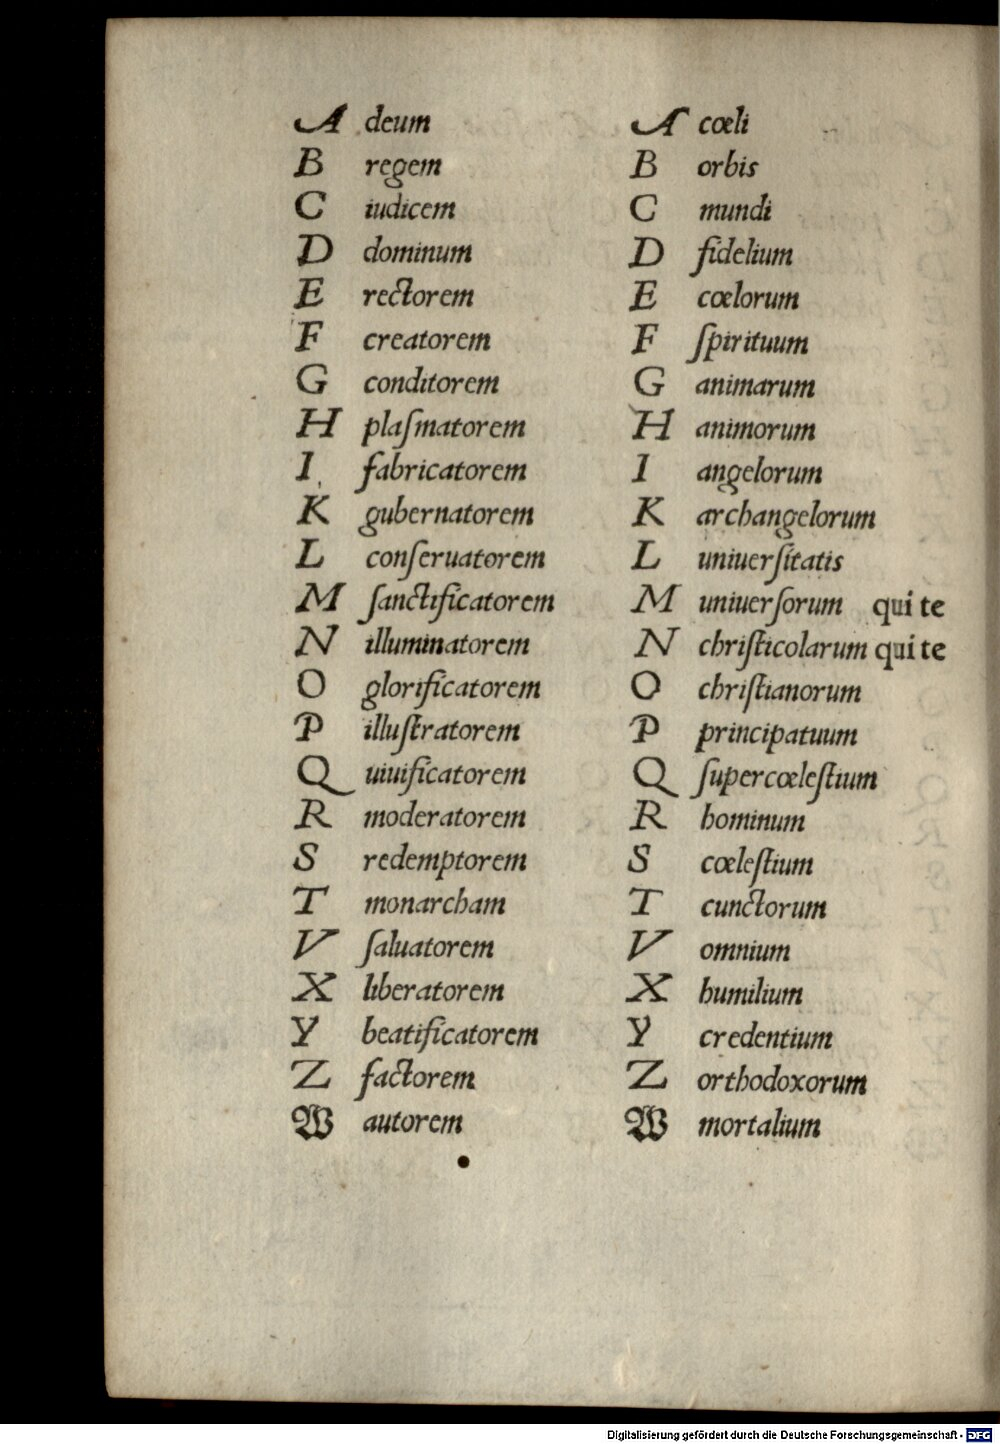 A deum
B regem
C iudicem
D dominum
E rectorem
F creatorem
G conditorem
H plaſmatorem
I fabricatorem
K gubernatorem
L conſeruatorem
M ſanctificatorem
N illuminatorem
O glorificatorem
P illuſtratorem
Q uiuificatorem
R moderatorem
S redemptorem
T monarcham
V ſaluatorem
X liberatorem
Y beatificatorem
Z factorem
W autorem
A cœli
B orbis
C mundi
D fidelium
E cœlorum
F ſpirituum
G animarum
H animorum
I angelorum
K archangelorum
L uniuerſitatis
M uniuerſorum qui te
N chriſticolarum qui te
O chriſtianorum
P principatuum
Q ſupercœleſtium
R hominum
S cœleſtium
T cunctorum
V omnium
X humilium
Y credentium
Z orthodoxorum
W mortalium
Digitalisierung gefördert durch die Deutsche Forschungsgemeinschaft - DFG